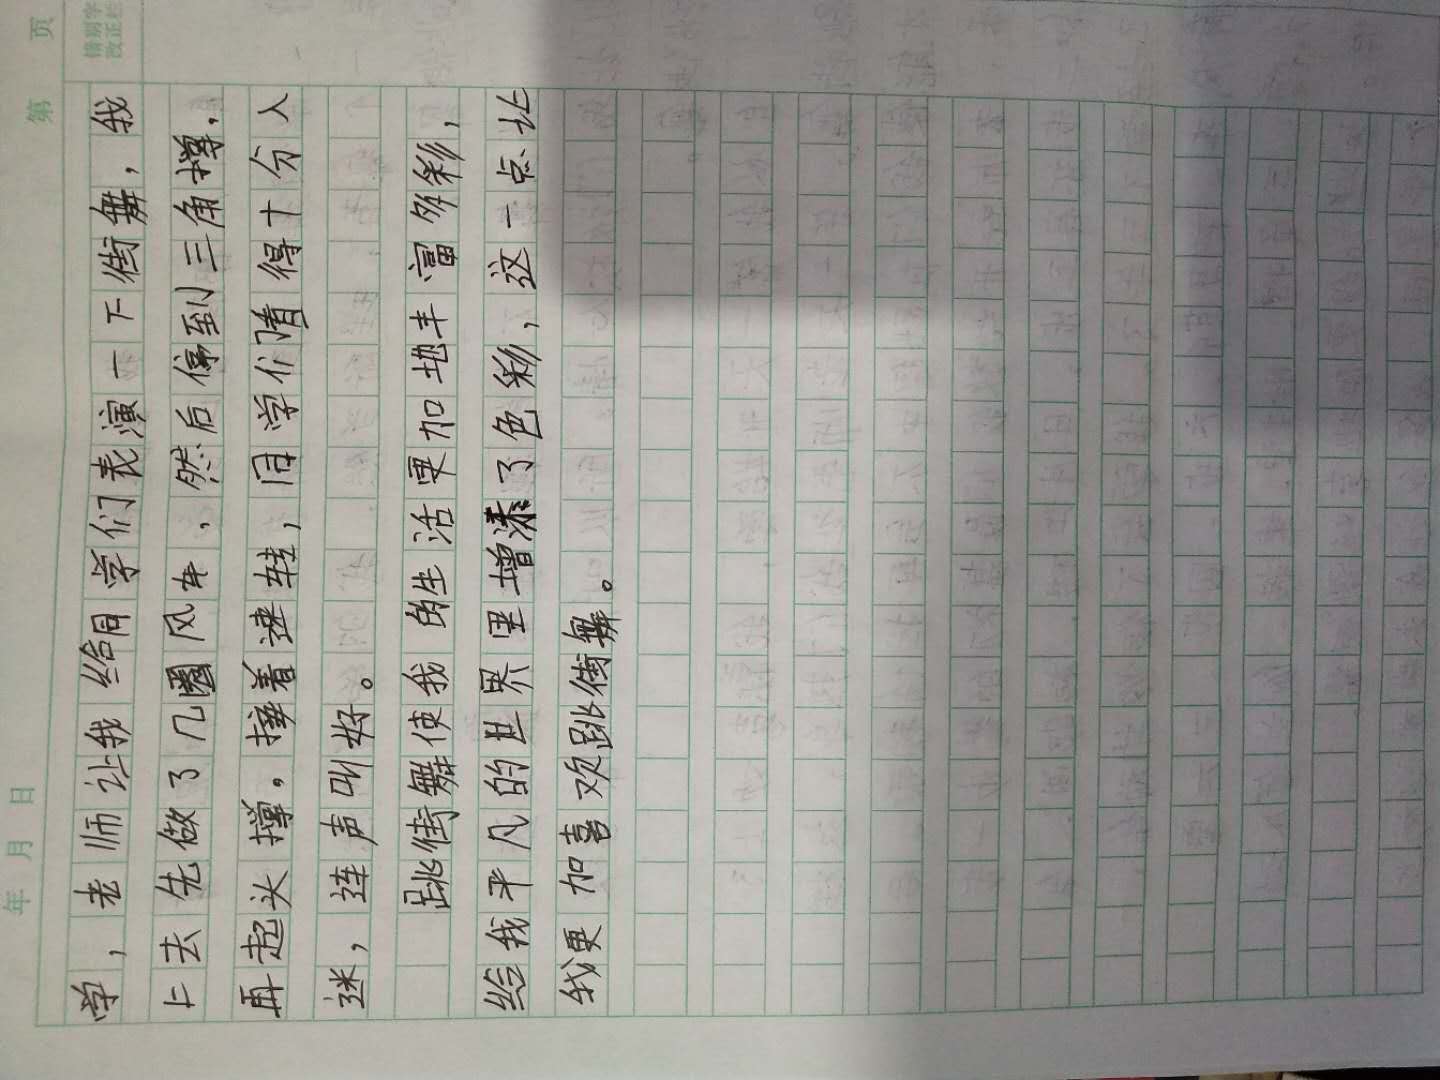 第 页
年 月 日
错别字
改正栏
学，老师让我给同学们表演一下街舞，我
上去先做了几圈风车，然后停到三角撑，
再起头撑。接着速转，同学们看得十分入
迷，连声叫好。
跳街舞使我的生活更加地丰富多彩，
给我平凡的世界里增添了色彩，这一点让
我更加喜欢跳街舞。